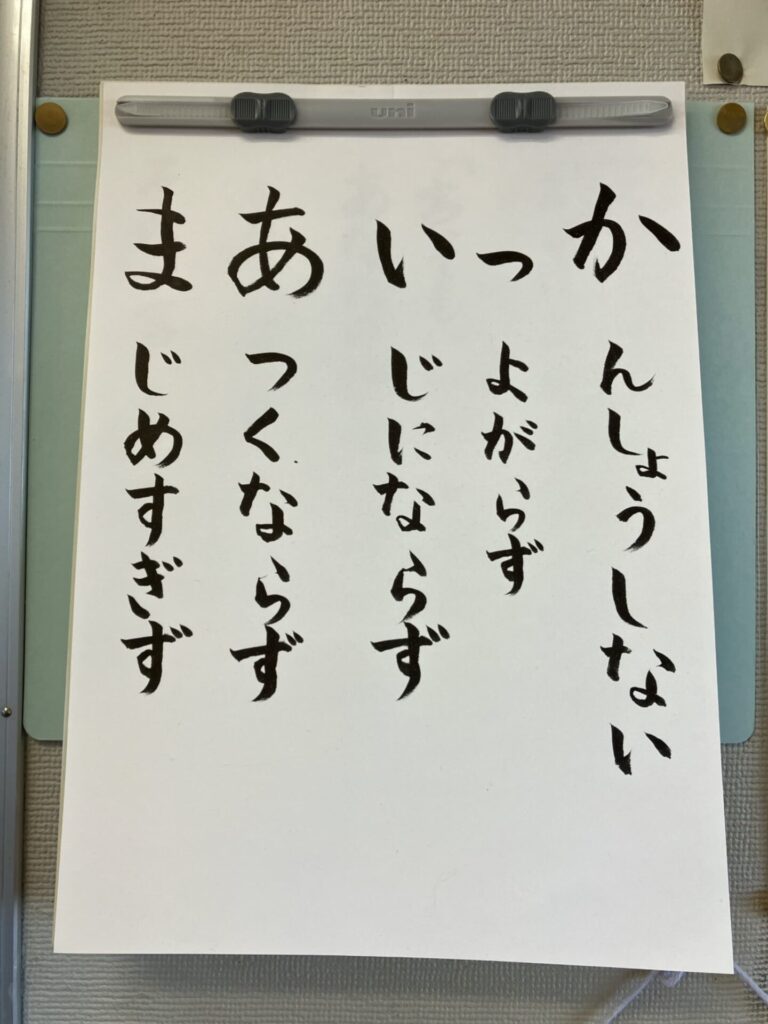 uni
かんしょうしない
つよがらず
いじにならず
あつくならず
まじめすぎず